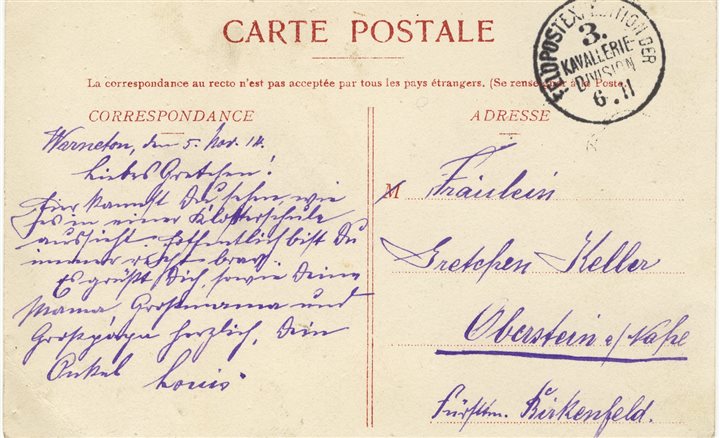 CARTE POSTALE
La correspondance au recto n'est pas acceptée par tous les pays étrangers. (Se renseigner à la Poste)
FELDPOSTEXPEDITION DER
3.
KAVALLERIE-
DIVISION
6.11
CORRESPONDANCE
Warneton, den 5. Nov. 14.
Liebes Gretchen!
Hier kannst Du sehen, wie
es in einer Klosterschule
aussieht. Hoffentlich bist Du
immer recht brav.
Es grüßt Dich, sowie Deine
Mama, Grossmama und
Grosspapa herzlich, Dein
Onkel Louis.
ADRESSE
M Fräulein
Gretchen Keller
Oberstein a/Nahe
Fürsttm. Birkenfeld.